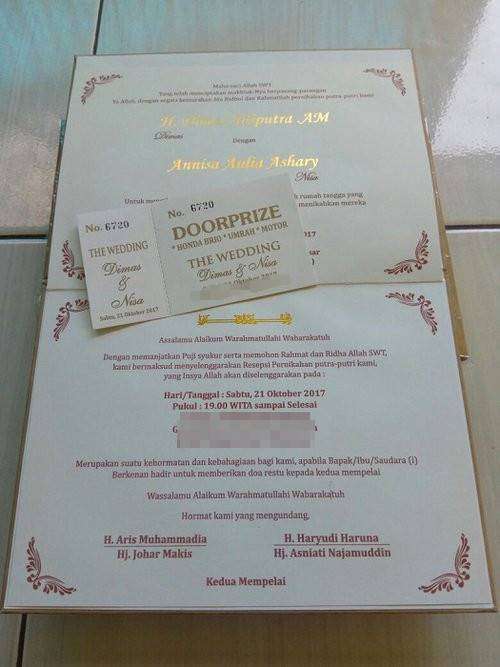 Maha suci Allah SWT
Yang telah menciptakan makhluk-Nya berpasang-pasangan
Ya Allah, dengan segala kemurahan Mu Ridhoi dan Rahmatilah pernikahan putra-putri kami
H. AM
Dimas
Dengan
Annisa Aulia Ashary
Nisa
rumah tangga yang
menikahkan mereka
2017
No. 6720
THE WEDDING
Dimas
&
Nisa
Sabtu, 21 Oktober 2017
No. 6720
DOORPRIZE
* HONDA BRIO * UMRAH * MOTOR
THE WEDDING
Dimas &
Nisa
Assalamu Alaikum Warahmatullahi Wabarakatuh
Dengan memanjatkan Puji syukur serta memohon Rahmat dan Ridha Allah SWT,
kami bermaksud menyelenggarakan Resepsi Pernikahan putra-putri kami,
yang Insya Allah akan diselenggarakan pada :
Hari/Tanggal : Sabtu, 21 Oktober 2017
Pukul : 19.00 WITA sampai Selesai
Merupakan suatu kehormatan dan kebahagiaan bagi kami, apabila Bapak/Ibu/Saudara (i)
Berkenan hadir untuk memberikan doa restu kepada kedua mempelai
Wassalamu Alaikum Warahmatullahi Wabarakatuh
Hormat kami yang mengundang,
H. Aris Muhammadia
Hj. Johar Makis
H. Haryudi Haruna
Hj. Asniati Najamuddin
Kedua Mempelai